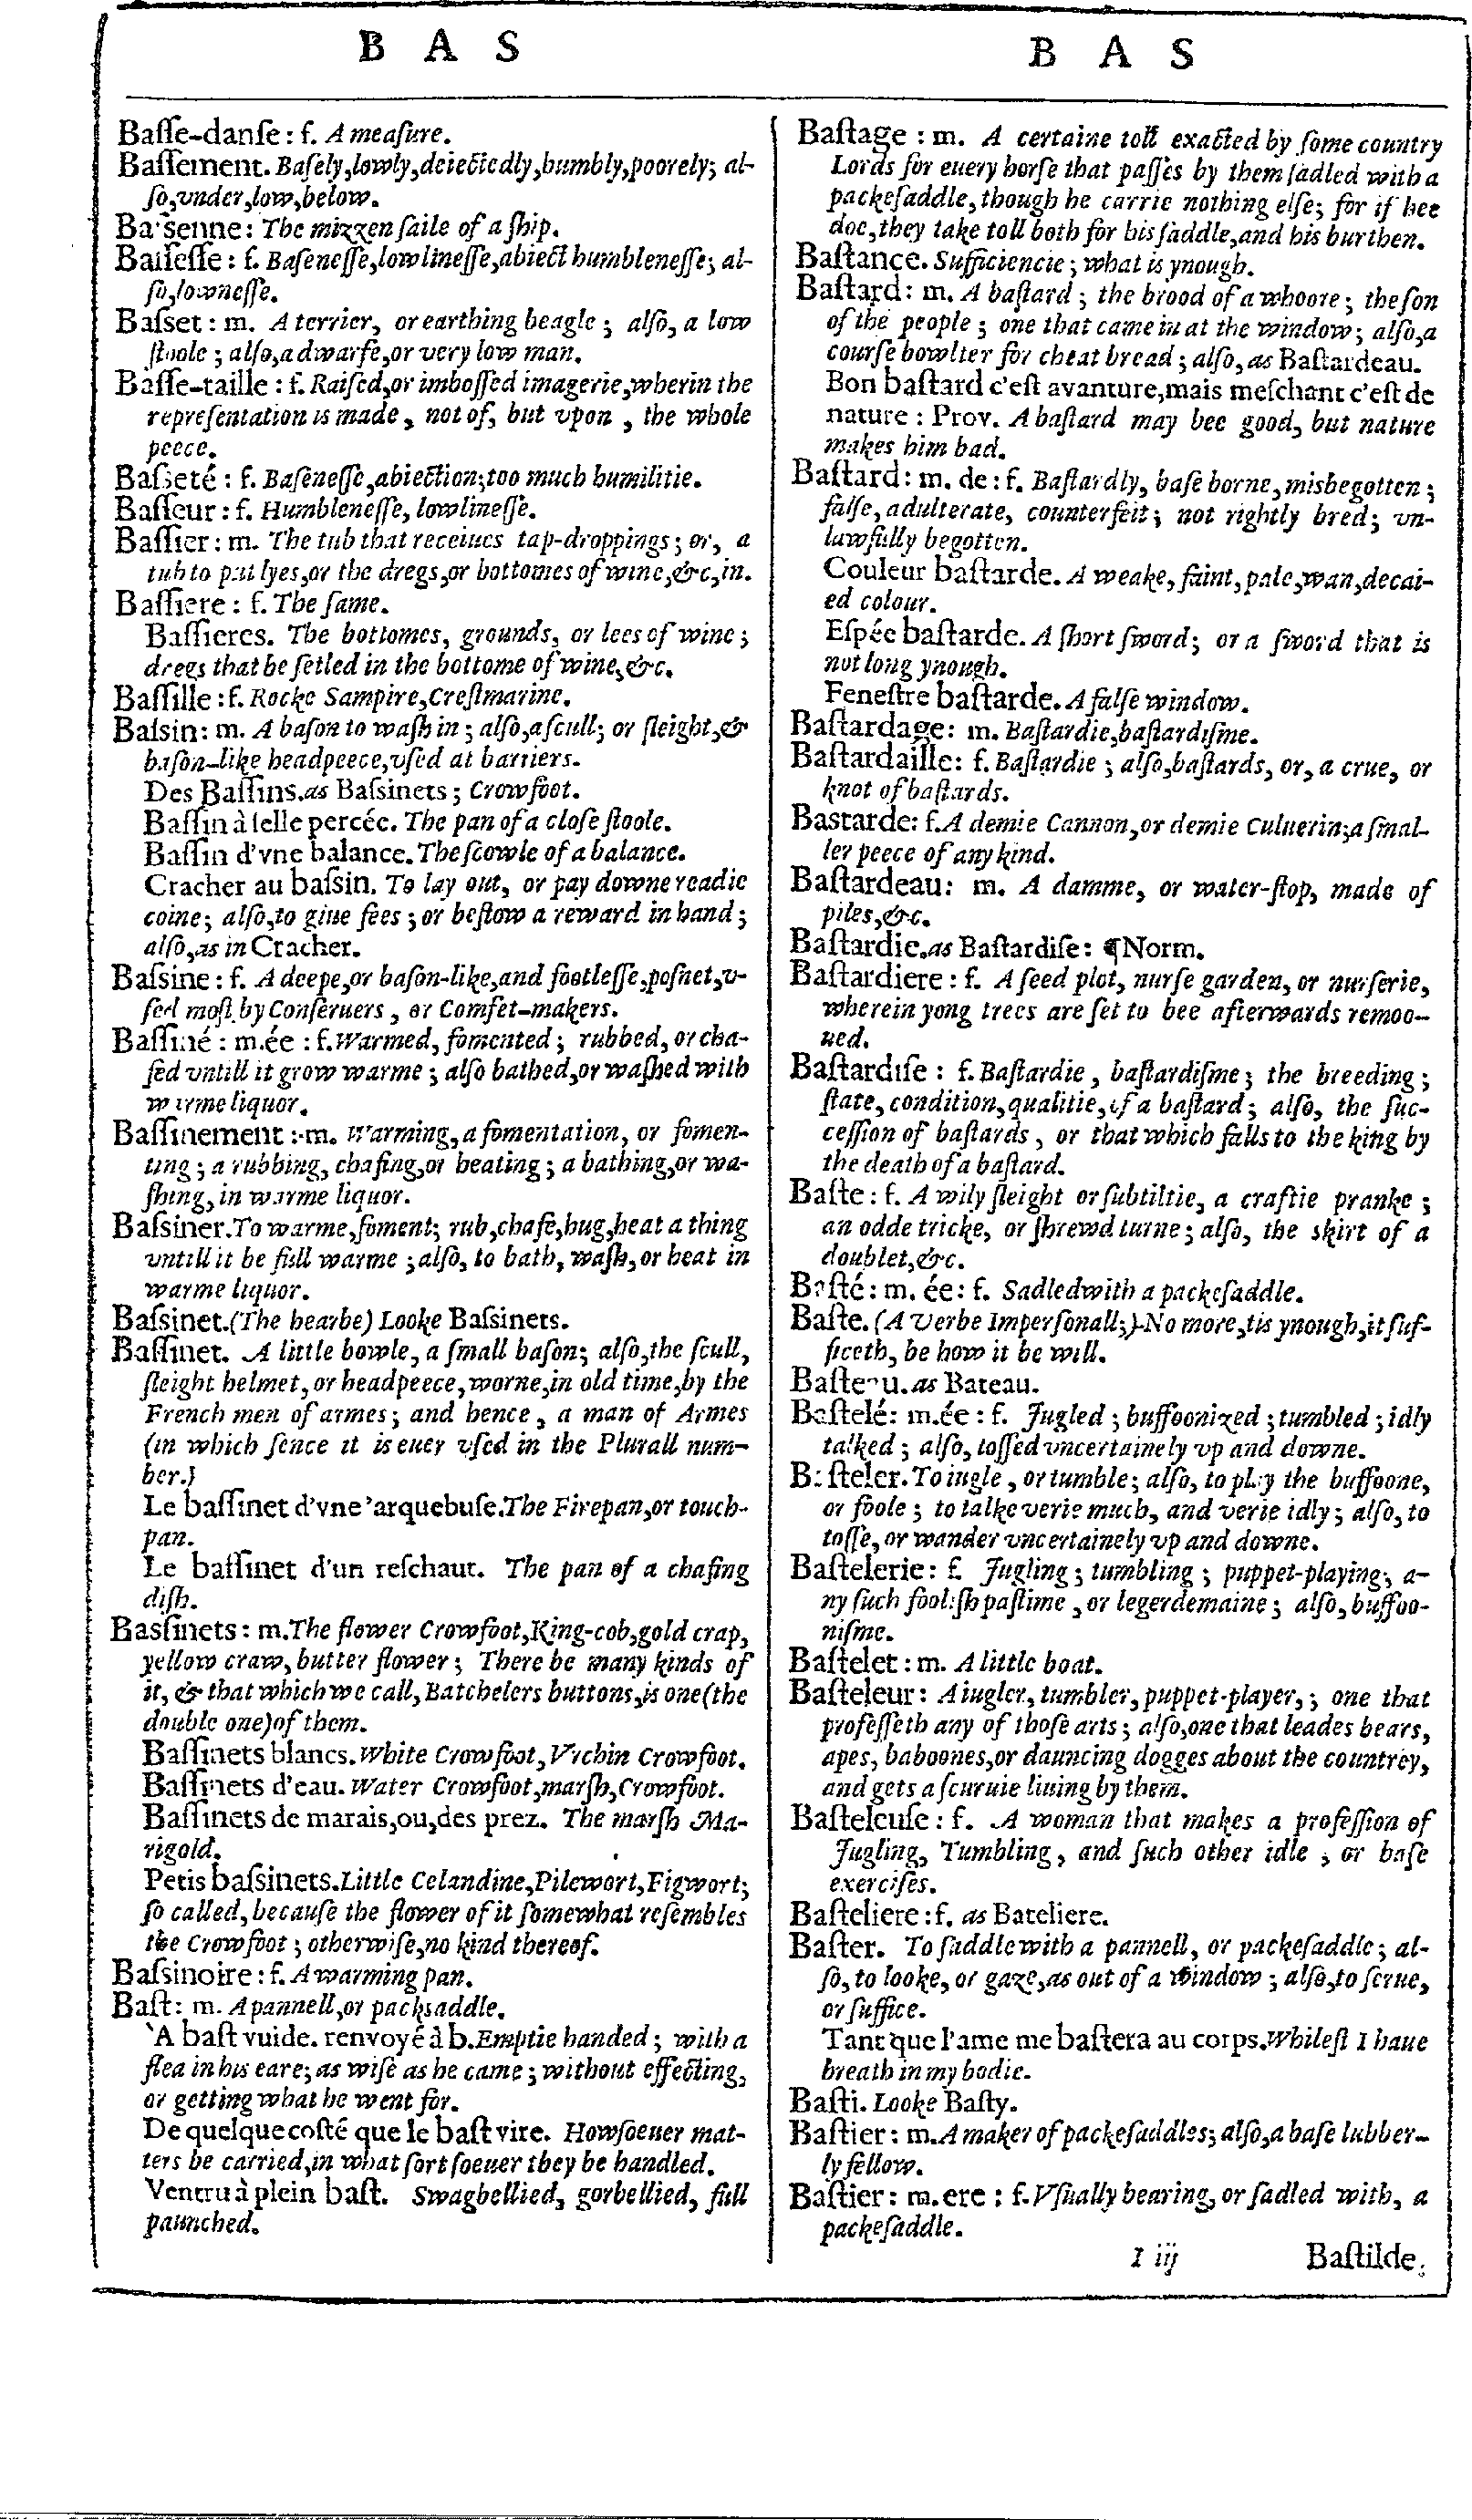 B A S
Baſſe-danſe : f. A meaſure.
Baſſement. Baſely,lowly,deiectedly,humbly,poorely; al-
ſo,vnder,low,below.
Baſsenne: The mizzen ſaile of a ſhip.
Baſſeſſe : f. Baſeneſſe,lowlineſſe,abiect humbleneſſe; al-
ſo,lowneſſe.
Baſset : m. A terrier, or earthing beagle ; alſo, a low
ſtoole ; alſo,a dwarfe,or very low man.
Baſſe-taille : f. Raiſed,or imboſſed imagerie,wherin the
repreſentation is made , not of, but vpon , the whole
peece.
Baſseté : f. Baſeneſſe,abiection;too much humilitie.
Baſſeur : f. Humbleneſſe, lowlineſſe.
Baſſier : m. The tub that receiues tap-droppings ; or, a
tub to put lyes,or the dregs,or bottomes of wine,&c,in.
Baſſiere : f. The ſame.
Baſſieres. The bottomes, grounds, or lees of wine ;
dregs that be ſetled in the bottome of wine,&c.
Baſſille : f. Rocke Sampire,Creſtmarine.
Baſsin: m. A baſon to waſh in ; alſo,a ſcull; or ſleight,&
baſon-like headpeece,vſed at barriers.
Des Baſſins.as Baſsinets ; Crowfoot.
Baſſin à ſelle percée. The pan of a cloſe ſtoole.
Baſſin d'vne balance. The ſcowle of a balance.
Cracher au baſsin. To lay out, or pay downe readie
coine; alſo,to giue fees ; or beſtow a reward in hand ;
alſo,as in Cracher.
Baſsine : f. A deepe,or baſon-like,and footleſſe,poſnet,v-
ſed moſt by Conſeruers , or Comfet-makers.
Baſſiné : m.ée : f.Warmed, fomented ; rubbed, or cha-
fed vntill it grow warme ; alſo bathed,or waſhed with
warme liquor.
Baſſinement : m. Warming, a fomentation, or fomen-
ting ; a rubbing, chafing,or heating ; a bathing,or wa-
ſhing, in warme liquor.
Baſsiner.To warme,foment; rub,chafe,hug,heat a thing
vntill it be full warme ; alſo, to bath, waſh, or heat in
warme liquor.
Baſsinet.(The hearbe) Looke Baſsinets.
Baſſinet. A little bowle, a ſmall baſon; alſo,the ſcull,
ſleight helmet, or headpeece, worne,in old time,by the
French men of armes ; and hence , a man of Armes
(in which ſence it is euer vſed in the Plurall num-
ber.)
Le baſſinet d'vne 'arquebuſe.The Firepan,or touch-
pan.
Le baſſinet d'un reſchaut. The pan of a chafing
diſh.
Basſinets : m.The flower Crowfoot,King-cob,gold crap,
yellow craw, butter flower ; There be many kinds of
it, & that which we call, Batchelers buttons,is one (the
double one) of them.
Baſſinets blancs. White Crowfoot, Vrchin Crowfoot.
Baſſinets d'eau. Water Crowfoot,marſh,Crowfoot.
Baſſinets de marais,ou,des prez. The marſh Ma-
rigold.
Petis baſsinets.Little Celandine,Pilewort,Figwort;
ſo called, becauſe the flower of it ſomewhat reſembles
the Crowfoot ; otherwiſe,no kind thereof.
Baſsinoire : f. A warming pan.
Baſt: m. A pannell,or packsaddle.
'A baſt vuide. renvoyé à b.Emptie handed ; with a
flea in his eare; as wiſe as he came ; without effecting,
or getting what he went for.
De quelque coſté que le baſt vire. Howſoeuer mat-
ters be carried,in what ſort ſoeuer they be handled.
Ventru à plein baſt. Swagbellied, gorbellied, full
paunched.
B A S
Baſtage : m. A certaine toll exacted by ſome country
Lords for euery horſe that paſſes by them ſadled with a
packeſaddle, though he carrie nothing elſe; for if hee
doe,they take toll both for his ſaddle,and his burthen.
Baſtance. Sufficiencie ; what is ynough.
Baſtard: m. A baſtard ; the brood of a whoore ; the ſon
of the people ; one that came in at the window ; alſo,a
courſe bowlter for cheat bread ; alſo, as Baſtardeau.
Bon baſtard c'eſt avanture,mais meſchant c'eſt de
nature : Prov. A baſtard may bee good, but nature
makes him bad.
Baſtard: m. de : f. Baſtardly, baſe borne, misbegotten ;
falſe, adulterate, counterfeit ; not rightly bred ; vn-
lawfully begotten.
Couleur baſtarde. A weake, faint, pale,wan,decai-
ed colour.
Eſpée baſtarde. A ſhort ſword; or a ſword that is
not long ynough.
Feneſtre baſtarde. A falſe window.
Baſtardage: m. Baſtardie,baſtardiſme.
Baſtardaille: f. Baſtardie ; alſo,baſtards, or, a crue, or
knot of baſtards.
Bastarde: f.A demie Cannon,or demie Culuerin;a ſmal-
ler peece of any kind.
Baſtardeau: m. A damme, or water-ſtop, made of
piles,&c.
Baſtardie.as Baſtardiſe: ¶Norm.
Baſtardiere : f. A ſeed plot, nurſe garden, or nurſerie,
wherein yong trees are ſet to bee afterwards remoo-
ued.
Baſtardiſe : f. Baſtardie , baſtardiſme ; the breeding ;
ſtate, condition,qualitie, of a baſtard ; alſo, the ſuc-
ceſſion of baſtards , or that which falls to the king by
the death of a baſtard.
Baſte : f. A wily ſleight or ſubtiltie, a craftie pranke ;
an odde tricke, or ſhrewd turne ; alſo, the skirt of a
doublet,&c.
Baſté : m. ée: f. Sadled with a packeſaddle.
Baſte. (A Verbe Imperſonall;) No more,tis ynough,it ſuf-
ficeth, be how it be will.
Baſteau.as Bateau.
Baſtelé: m.ée : f. Jugled ; buffoonized ; tumbled ; idly
talked ; alſo, toſſed vncertainely vp and downe.
Baſteler. To iugle , or tumble ; alſo, to play the buffoone,
or foole ; to talke verie much, and verie idly ; alſo, to
toſſe, or wander vncertainely vp and downe.
Baſtelerie: f. Jugling ; tumbling ; puppet-playing; a-
ny ſuch fooliſh paſtime , or legerdemaine ; alſo, buffoo-
niſme.
Baſtelet : m. A little boat.
Baſteleur: A iugler, tumbler, puppet-player, ; one that
profeſſeth any of thoſe arts ; alſo,one that leades bears,
apes, baboones,or dauncing dogges about the countrey,
and gets a ſcuruie liuing by them.
Baſteleuſe : f. A woman that makes a profeſſion of
Jugling, Tumbling, and ſuch other idle , or baſe
exerciſes.
Baſteliere : f. as Bateliere.
Baſter. To ſaddle with a pannell, or packeſaddle ; al-
ſo, to looke, or gaze,as out of a window ; alſo,to ſerue,
or ſuffice.
Tant que l'ame me baſtera au corps.Whileſt I haue
breath in my bodie.
Baſti. Looke Baſty.
Baſtier : m.A maker of packeſaddles; alſo,a baſe lubber-
ly fellow.
Baſtier : m.ere : f.Vſually bearing, or ſadled with, a
packeſaddle.
I iij Baſtilde.